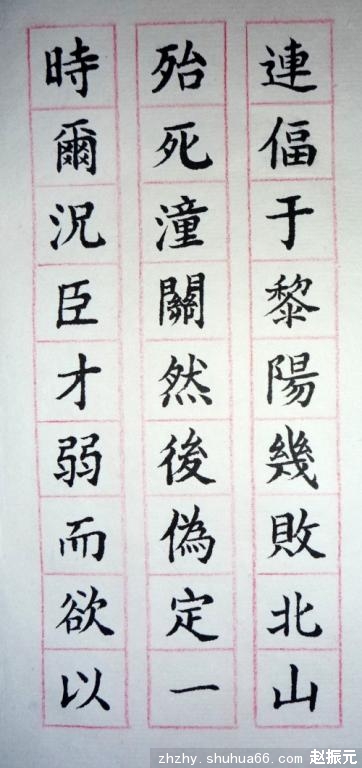 連偪于黎陽幾敗北山
殆死潼關然後偽定一
時爾況臣才弱而欲以
zhzhy.shuhua66.com 赵振元